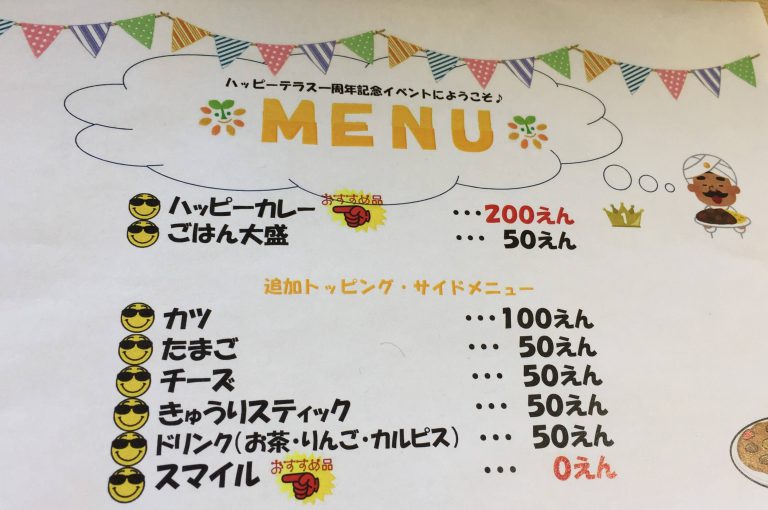 ハッピーテラス一周年記念イベントにようこそ♪
MENU
ハッピーカレー おすすめ品 …200えん 1
ごはん大盛 … 50えん
追加トッピング・サイドメニュー
カツ …100えん
たまご … 50えん
チーズ … 50えん
きゅうりスティック … 50えん
ドリンク(お茶・りんご・カルピス) … 50えん
スマイル おすすめ品 … 0えん